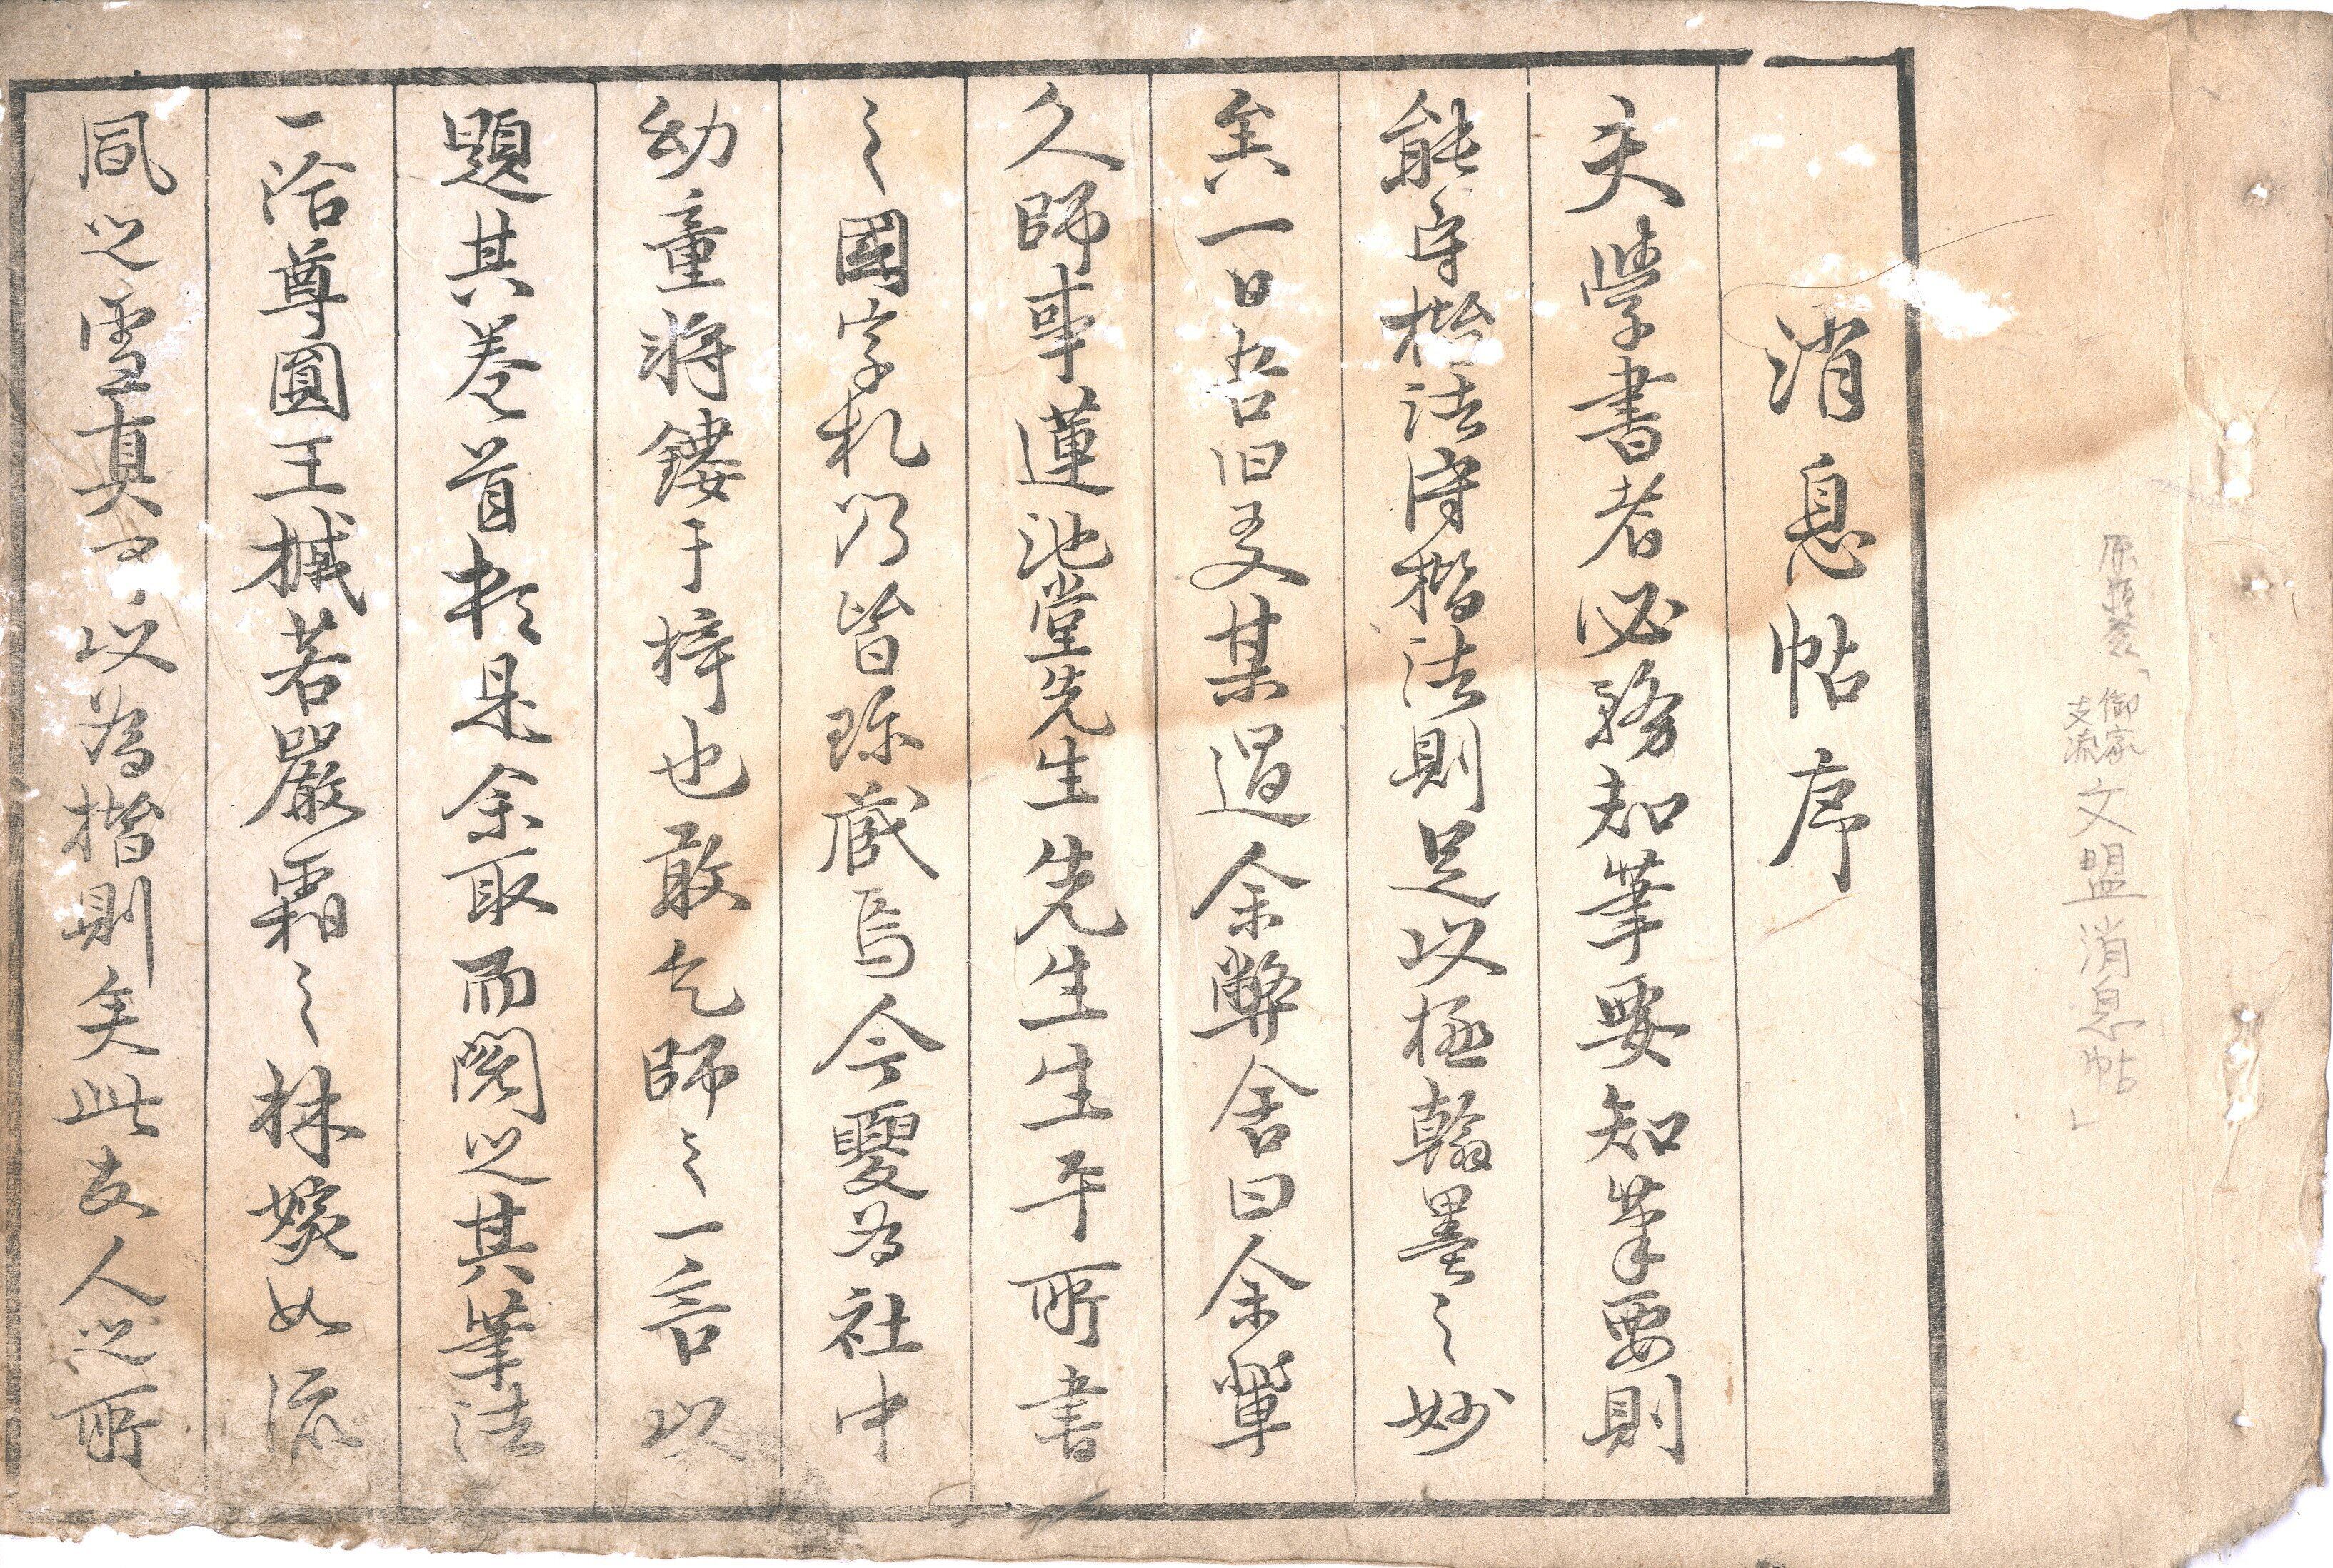 原題簽「御家支流文盟消息帖」
消息帖序
夫學書者必務知筆要知筆要則
能守楷法守楷法則足以極翰墨之妙
矣一日吾旧友某過余弊舍曰余輩
久師事蓮池堂先生先生生平所書
之國字札乃皆珎蔵焉今要為社中
幼童将鏤于梓也敢乞師之一言以
題其巻首於是余取而閲之其筆法
一沿尊圓王椷若嚴霜之林媛如流
風之雪真可以為楷則矣此友人之所